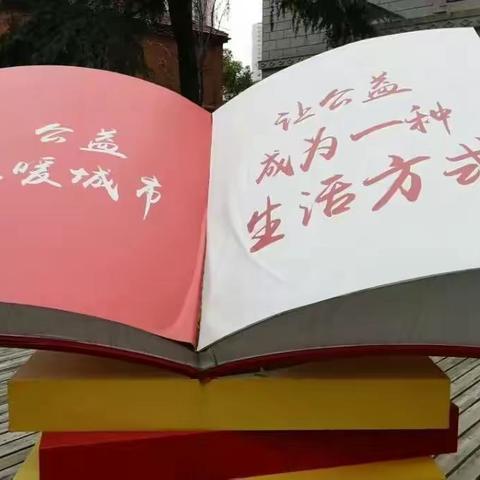 公益
暖城市
让公益
成为一种
生活方式